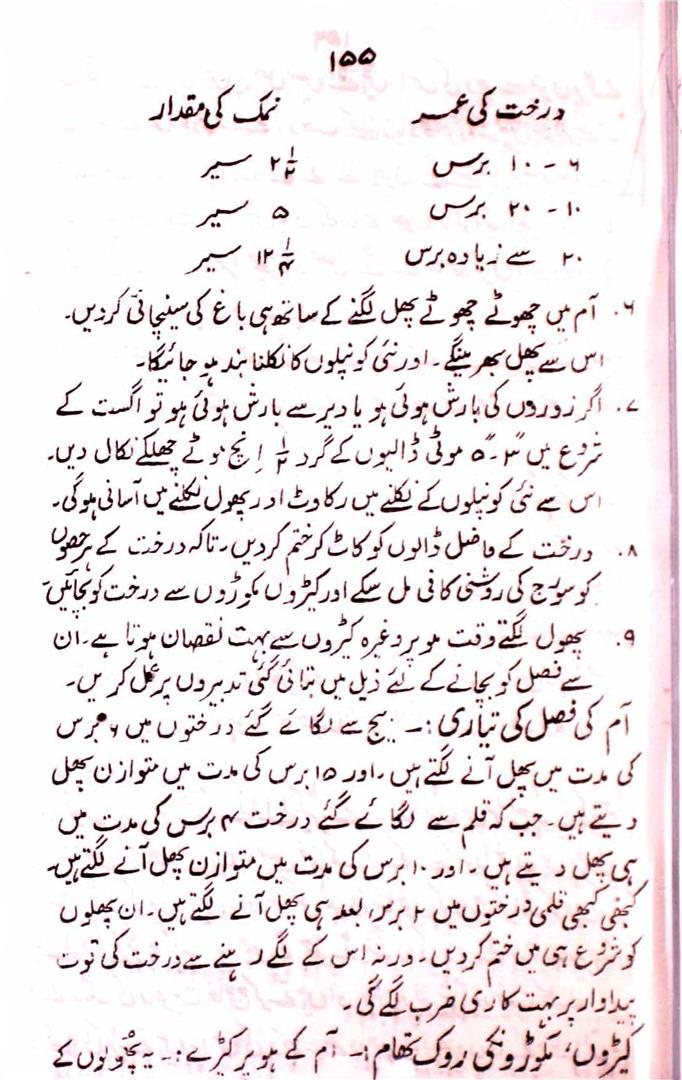 ۱۵۵
درخت کی عمر نمک کی مقدار
۶ - ۱۰ برس ۲ ۱/۲ سیر
۱۰ - ۲۰ برس ۵ سیر
۲۰ سے زیادہ برس ۱۲ ۱/۲ سیر
۶. آم میں چھوٹے چھوٹے پھل لگنے کے ساتھ ہی باغ کی سینچائی کردیں۔
اس سے پھل بھرینگے۔ اور نئی کونپلوں کا نکلنا بند ہو جائیگا۔
۷. اگر زوروں کی بارش ہوئی ہو یا دیر سے بارش ہوئی ہو تو اگست کے
شروع میں ۳"-۵" موٹی ڈالیوں کے گرد ۱/۲ اِنچ موٹے چھلکے نکال دیں۔
اس سے نئی کونپلوں کے نکلنے میں رکاوٹ اور پھول نکلنے میں آسانی ہوگی۔
۸. درخت کے فاضل ڈالوں کو کاٹ کر ختم کردیں۔ تاکہ درخت کے ہر حصوں
کو سورج کی روشنی کافی مل سکے اور کیڑوں مکوڑوں سے درخت کو بچائیں۔
۹. پھول لگتے وقت ہوپر وغیرہ کیڑوں سے بہت نقصان ہوتا ہے۔ ان
سے فصل کو بچانے کے لئے ذیل میں بتائی گئی تدبیروں پر عمل کریں۔
آم کی فصل کی تیاری :۔ بیج سے لگائے گئے درختوں میں ۶ برس
کی مدت میں پھل آنے لگتے ہیں۔ اور ۱۵ برس کی مدت میں متوازن پھل
دیتے ہیں۔ جب کہ قلم سے لگائے گئے درخت ۴ برس کی مدت میں
ہی پھل دیتے ہیں۔ اور ۱۰ برس کی مدت میں متوازن پھل آنے لگتے ہیں۔
کبھی کبھی قلمی درختوں میں ۲ برس بعد ہی پھل آنے لگتے ہیں۔ ان پھلوں
کو شروع ہی میں ختم کردیں۔ ورنہ اس کے لگے رہنے سے درخت کی قوت
پیداوار پر بہت کاری ضرب لگے گی۔
کیڑوں، مکوڑونکی روک تھام :۔ آم کے ہوپر کیڑے :۔ یہ پھولوں کے